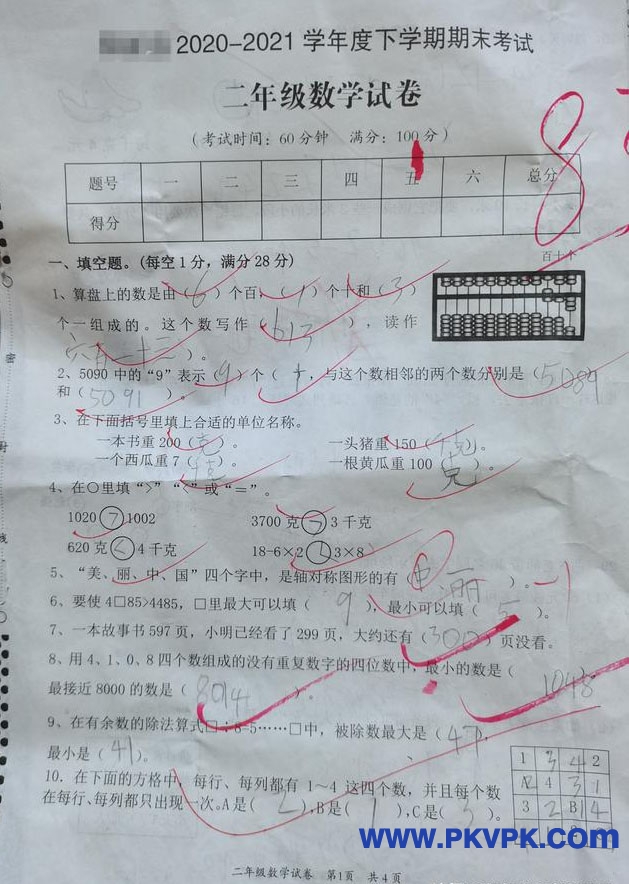 2020-2021 学年度下学期期末考试
二年级数学试卷
(考试时间：60分钟 满分：100分)
题号 一 二 三 四 五 六 总分
得分
8
一、填空题。(每空1分，满分28分)
百十个
1、算盘上的数是由（6）个百，（1）个十和（3）
个一组成的。这个数写作（613），读作
）。
2、5090 中的“9”表示（9）个（十），与这个数相邻的两个数分别是（5089）
和（5091）。
3、在下面括号里填上合适的单位名称。
一本书重 200（克）。 一头猪重 150（千克）。
一个西瓜重 7（千克）。 一根黄瓜重 100（克）。
4、在○里填“>”“<”或“=”。
1020 > 1002 3700 克 > 3 千克
620 克 < 4 千克 18-6×2 3×8
5、“美、丽、中、国”四个字中，是轴对称图形的有（中 丽）。 -1
6、要使 4□85>4485，□里最大可以填（9），最小可以填（5）。
7、一本故事书 597 页，小明已经看了 299 页，大约还有（300）页没看。
8、用 4、1、0、8 四个数组成的没有重复数字的四位数中，最小的数是（
1048
最接近 8000 的数是（8014）。
9、在有余数的除法算式□÷8=5……□中，被除数最大是（47），
最小是（41）。
10. 在下面的方格中，每行、每列都有 1~4 这四个数，并且每个数
在每行、每列都只出现一次。A是（2），B是（1），C是（3）。
1 3 4 2
A2 4 3 1
3 2 B1 4
www.PKVPK.com
二年级数学试卷 第1页 共4页